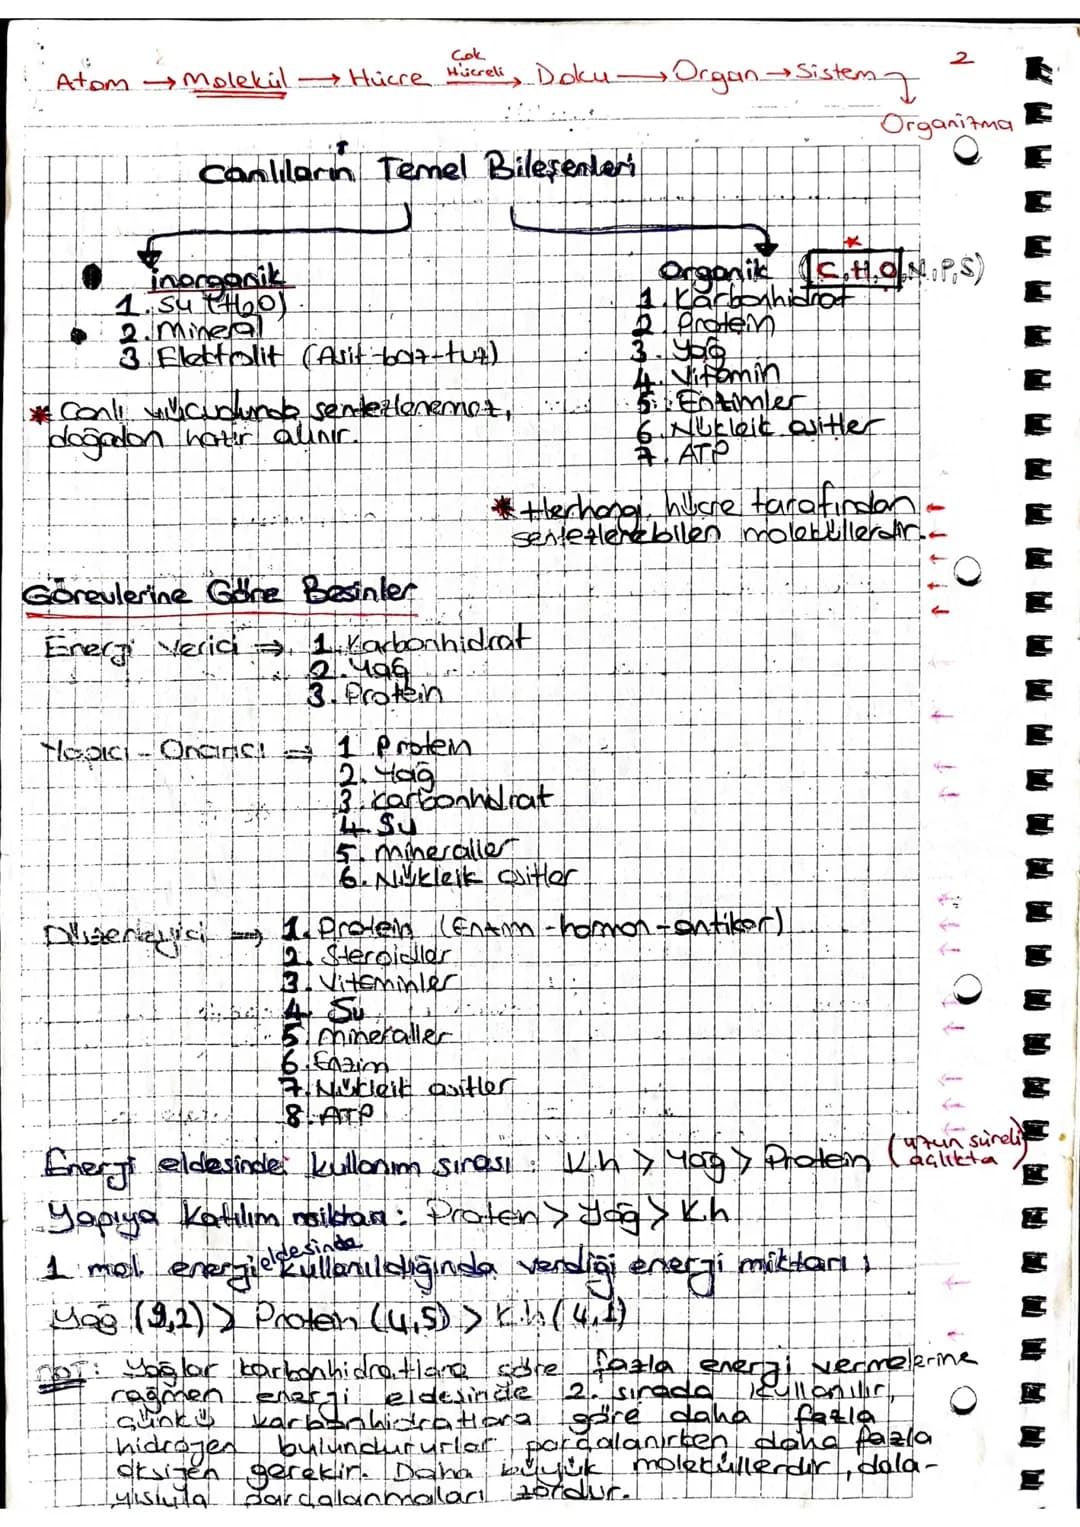 2
Atom → Molekül → Hücre Çok Hücreli → Doku → Organ → Sistem
Organizma
Canlıların Temel Bileşenleri
İnorganik
1. Su (H2O)
2. Mineral
3. Elektrolit (Asit-baz-tuz)
* Canlı vücudunda sentezlenemez,
doğadan hazır alınır.
Organik (C,H,O,N,P,S)
1. Karbonhidrat
2. Protein
3. Yağ
4. Vitamin
5. Enzimler
6. Nükleik asitler
7. ATP
* Herhangi hücre tarafından
sentezlenebilen moleküllerdir.
Görevlerine Göre Besinler
Energi Verici ⇒ 1. Karbonhidrat
2. Yağ
3. Protein
Yapıcı - Onarıcı ⇒ 1 Protein
2. Yağ
3. Karbonhdrat
4. Su
5. mineraller
6. Nükleik asitler
Düzenleyici ⇒ 1. Protein (Enzim-homon-antikor)
2. Steroidler
3. Vitaminler
4. Su
5. mineraller
6. Enzim
7. Nükleik asitler
8. ATP
Energi eldesinde kullanım sırası: K.h > Yağ > Protein (uzun süreli açlıkta)
Yapıya Katılım miktarı: Protein > Yağ > K.h
1 mol energi eldesinde kullanıldığında verdiği energi miktarı;
Yağ (9,2) > Protein (4,5) > K.h (4,1)
NOT: Yağlar karbonhidratlara göre fazla energi vermelerine
rağmen energi eldesinde 2. sırada kullanılır,
çünkü karbonhidratlara göre daha fazla
hidrojen bulundururlar parçalanırken daha fazla
oksijen gerekir. Daha büyük moleküllerdir, dola-
yısıyla parçalanmaları zordur.